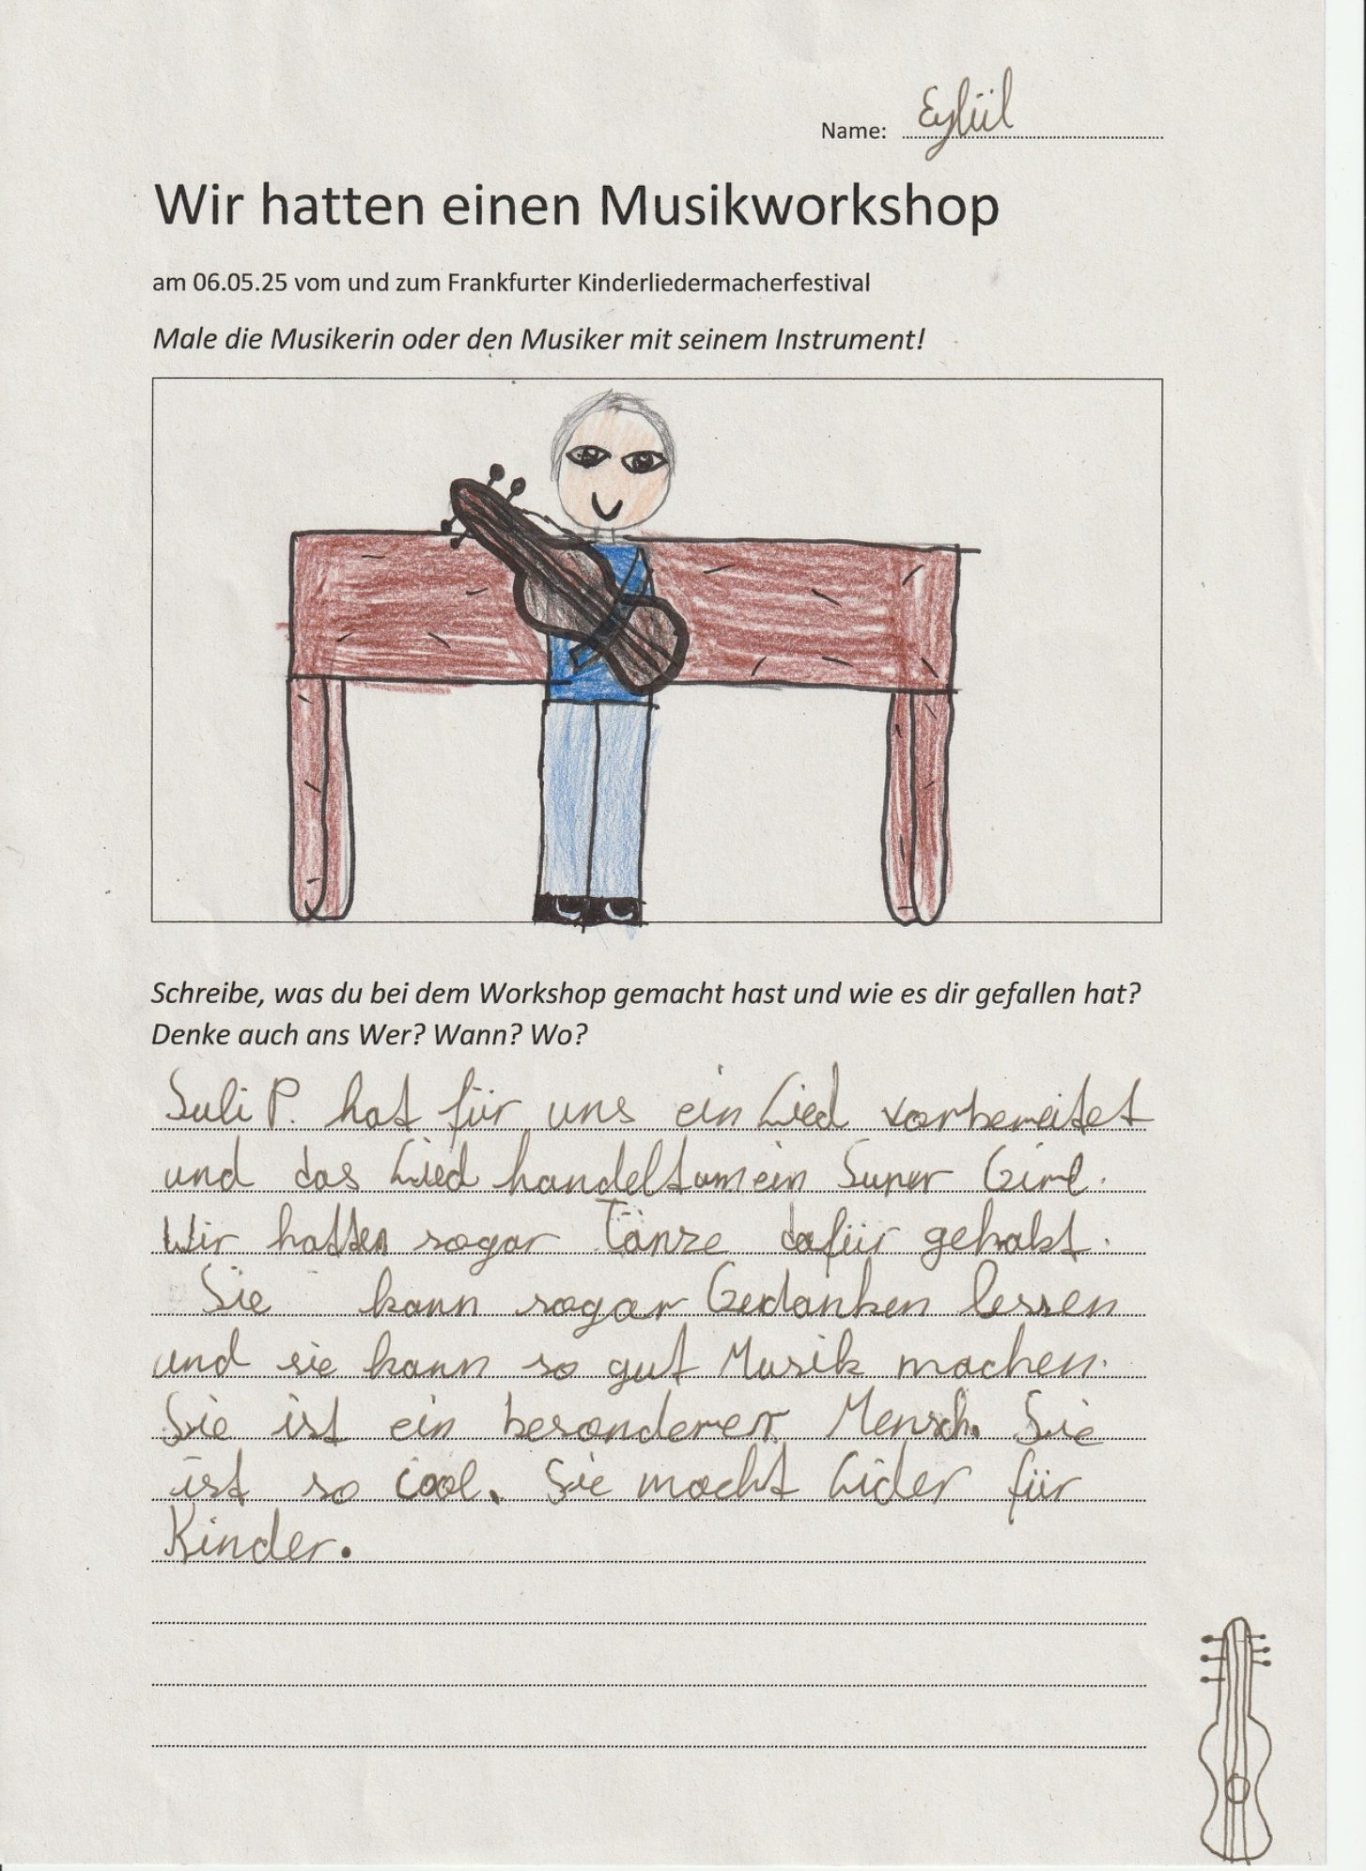 Name: Eylül
Wir hatten einen Musikworkshop
am 06.05.25 vom und zum Frankfurter Kinderliedermacherfestival
Male die Musikerin oder den Musiker mit seinem Instrument!
Schreibe, was du bei dem Workshop gemacht hast und wie es dir gefallen hat?
Denke auch ans Wer? Wann? Wo?
Suli P. hat für uns ein Lied vorbereitet
und das Lied handelt um ein Super Girl.
Wir hatten sogar Tänze dafür gehabt.
Sie kann sogar Gedanken lessen
und sie kann so gut Musik machen.
Sie ist ein besonderer Mensch. Sie
ist so cool. Sie macht Lider für
Kinder.